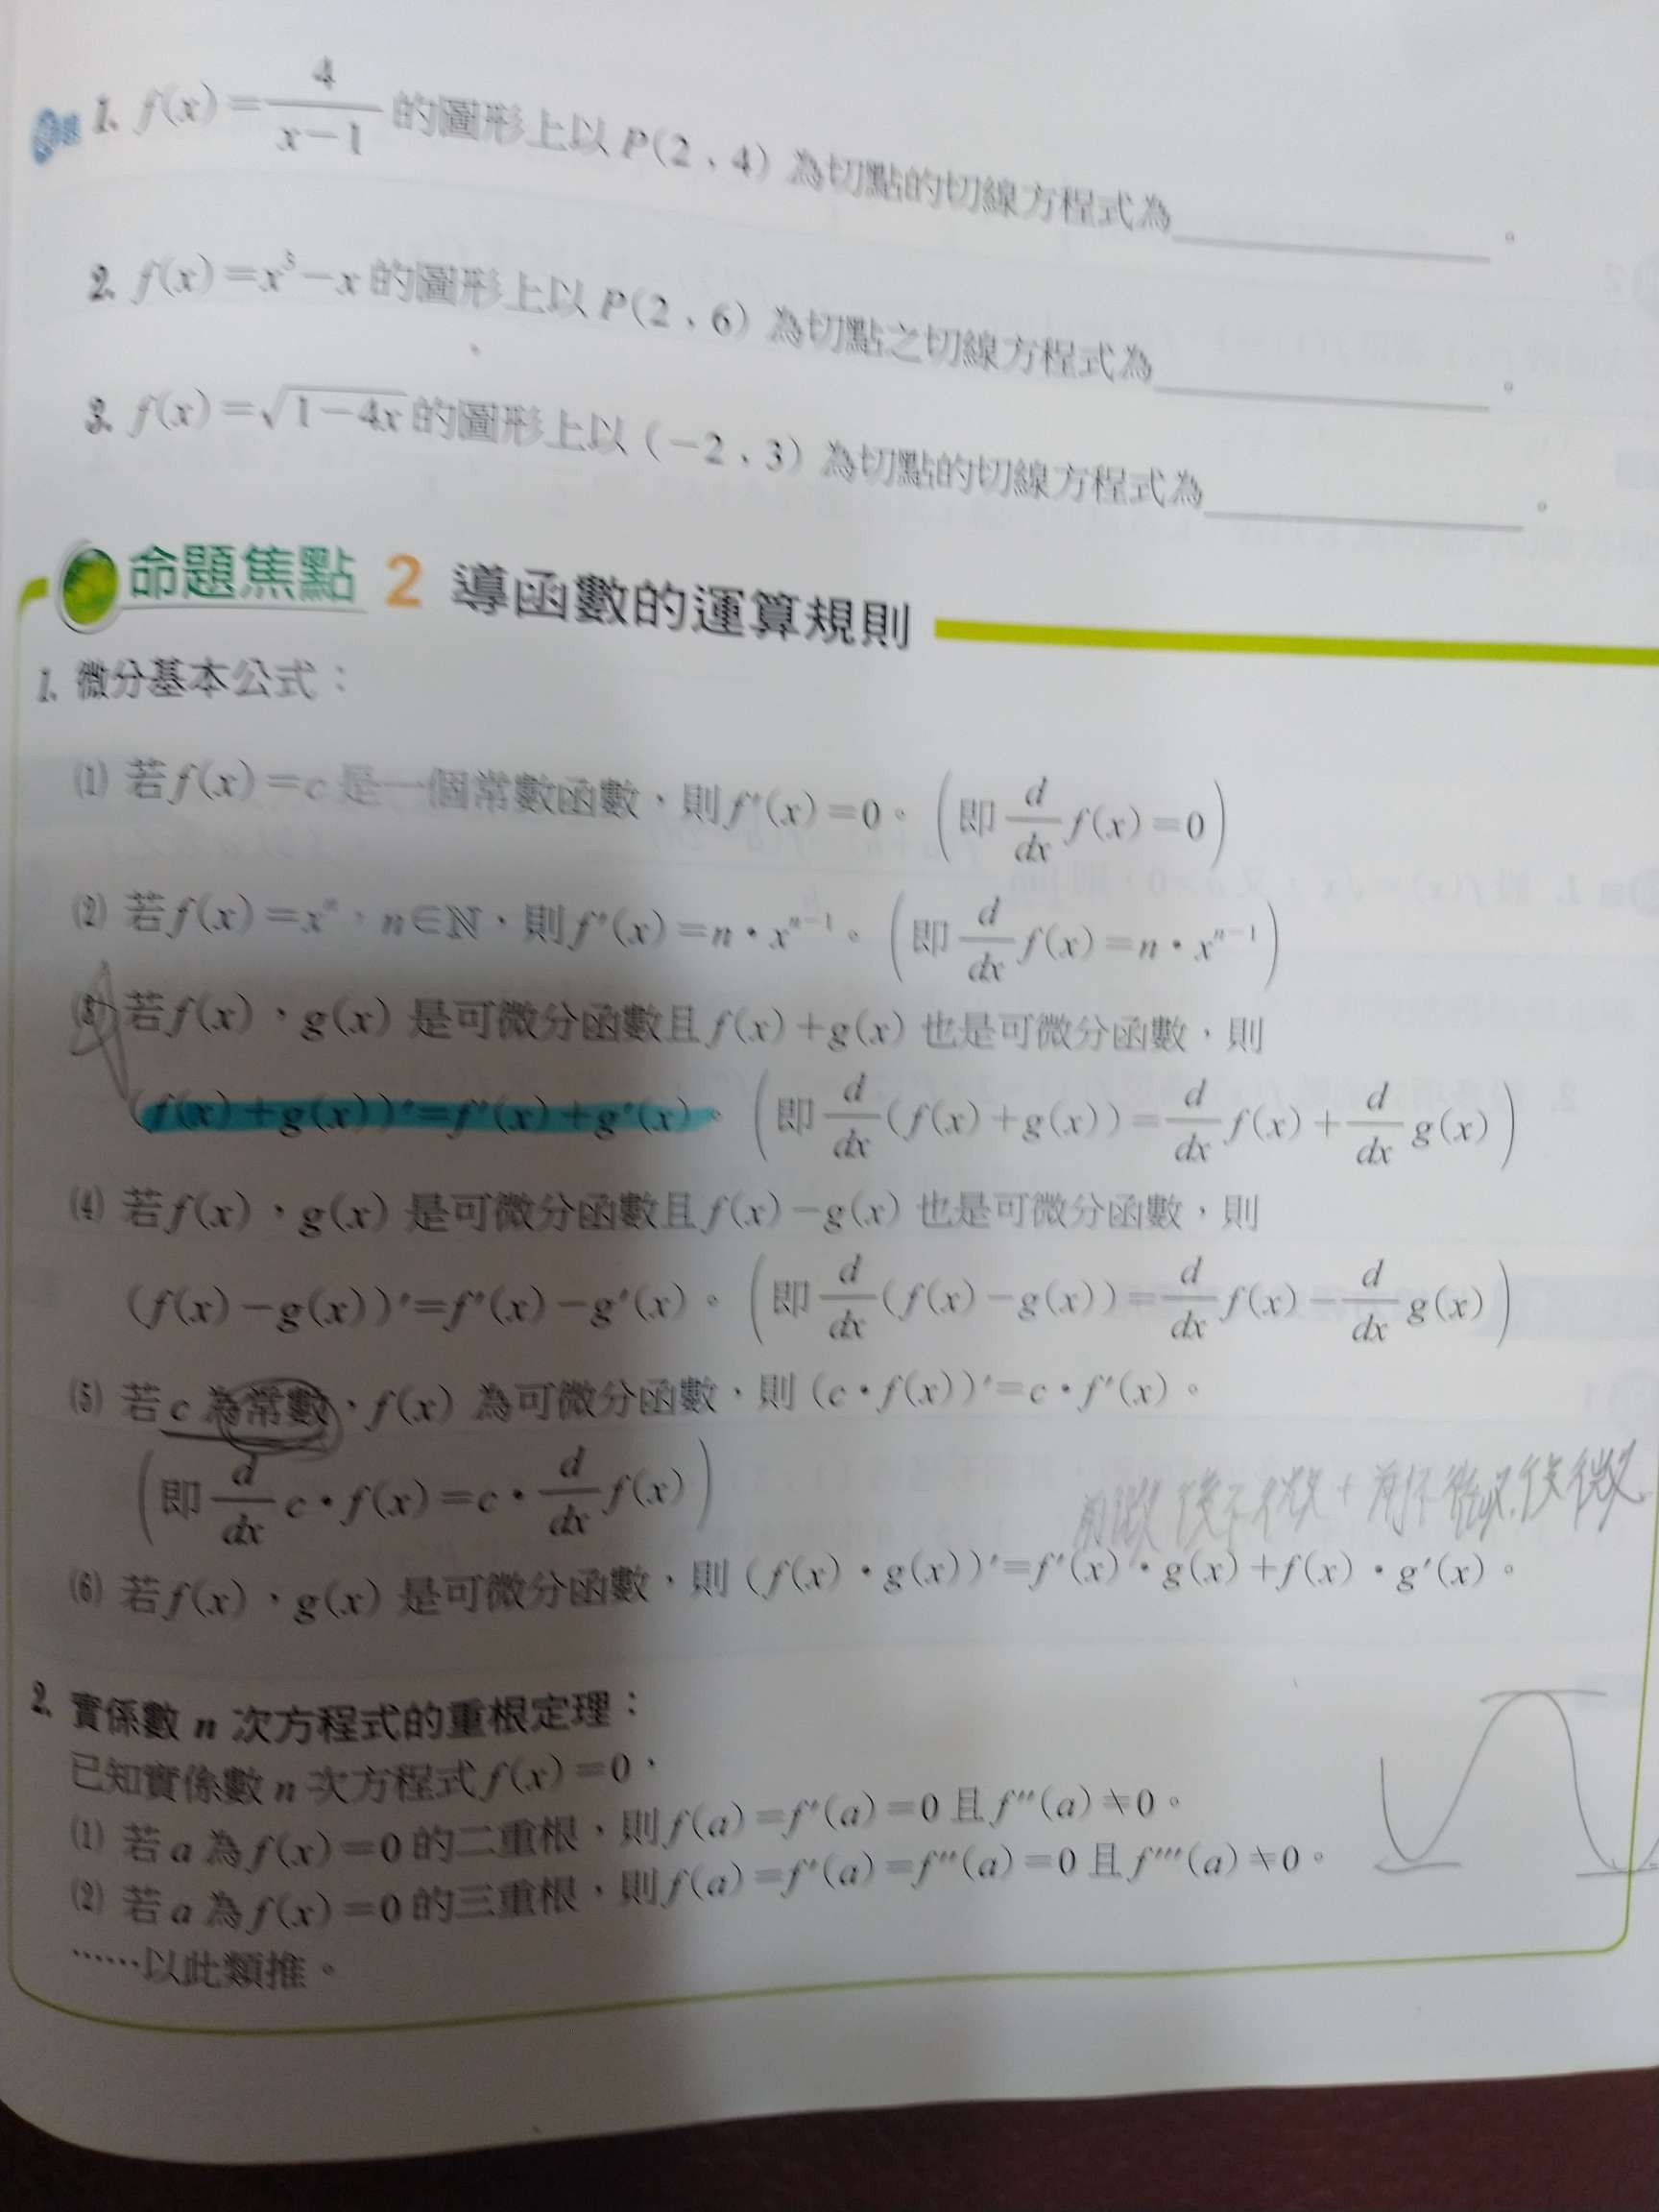 1. f(x)=4/(x-1) 的圖形上以 P(2、4) 為切點的切線方程式為________。
2. f(x)=x³-x 的圖形上以 P(2、6) 為切點之切線方程式為________。
3. f(x)=√(1-4x) 的圖形上以 (-2、3) 為切點的切線方程式為________。
命題焦點 2 導函數的運算規則
1. 微分基本公式：
(1) 若 f(x)=c 是一個常數函數，則 f'(x)=0。(即 d/dx f(x)=0)
(2) 若 f(x)=xⁿ，n∈ℕ，則 f'(x)=n·xⁿ⁻¹。(即 d/dx f(x)=n·xⁿ⁻¹)
(3) 若 f(x)，g(x) 是可微分函數且 f(x)+g(x) 也是可微分函數，則
(f(x)+g(x))'=f'(x)+g'(x)。(即 d/dx (f(x)+g(x))=d/dx f(x)+d/dx g(x))
(4) 若 f(x)，g(x) 是可微分函數且 f(x)-g(x) 也是可微分函數，則
(f(x)-g(x))'=f'(x)-g'(x)。(即 d/dx (f(x)-g(x))=d/dx f(x)-d/dx g(x))
(5) 若 c 為常數，f(x) 為可微分函數，則 (c·f(x))'=c·f'(x)。
(即 d/dx c·f(x)=c·d/dx f(x))
前微後不微+前不微後微
(6) 若 f(x)，g(x) 是可微分函數，則 (f(x)·g(x))'=f'(x)·g(x)+f(x)·g'(x)。
2. 實係數 n 次方程式的重根定理：
已知實係數 n 次方程式 f(x)=0，
(1) 若 a 為 f(x)=0 的二重根，則 f(a)=f'(a)=0 且 f''(a)≠0。
(2) 若 a 為 f(x)=0 的三重根，則 f(a)=f'(a)=f''(a)=0 且 f'''(a)≠0。
……以此類推。